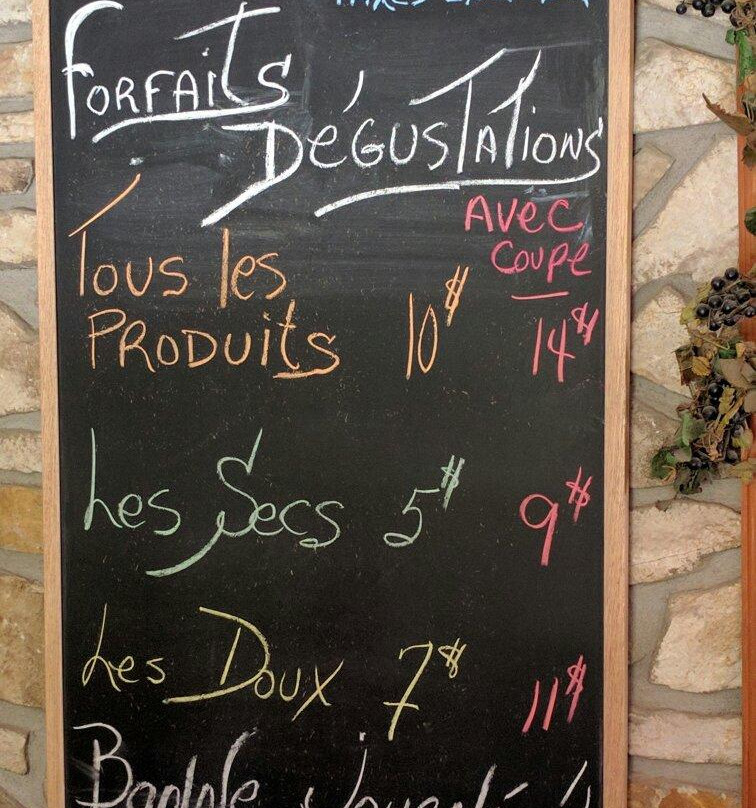 Forfaits
Dégustations
Avec
Coupe
Tous les
Produits 10$ 14$
Les Secs 5$ 9$
Les Doux 7$ 11$